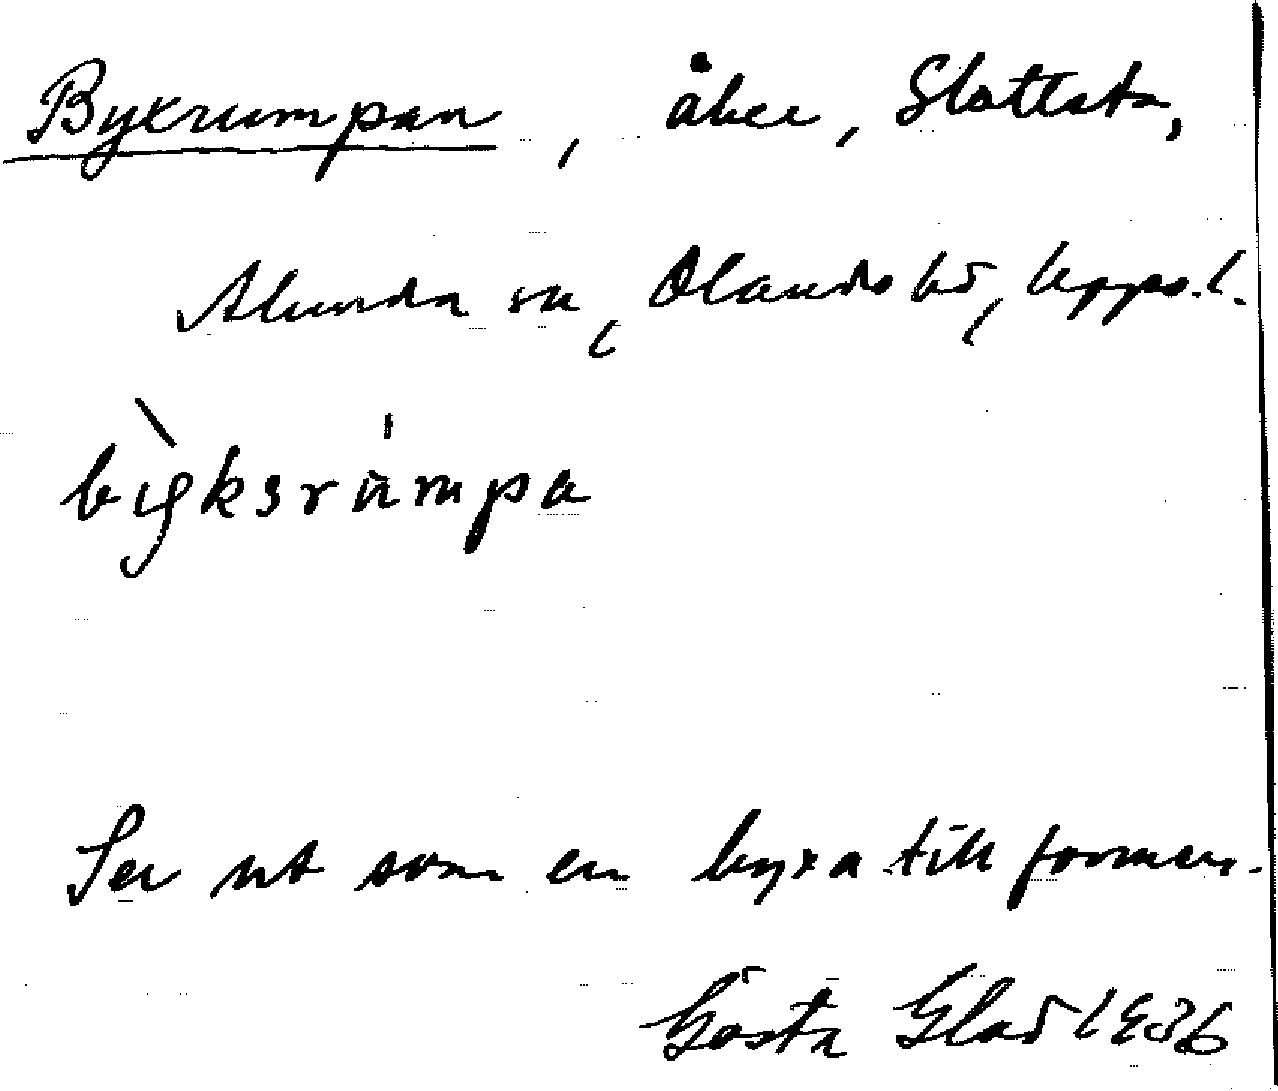 Byxrumpan, åker, Slottsta,
Alunda sn, Olands hd, Upps. l.
by̆ksrumpa
Ser ut som en byxa till formen.
Gösta Glad 1936